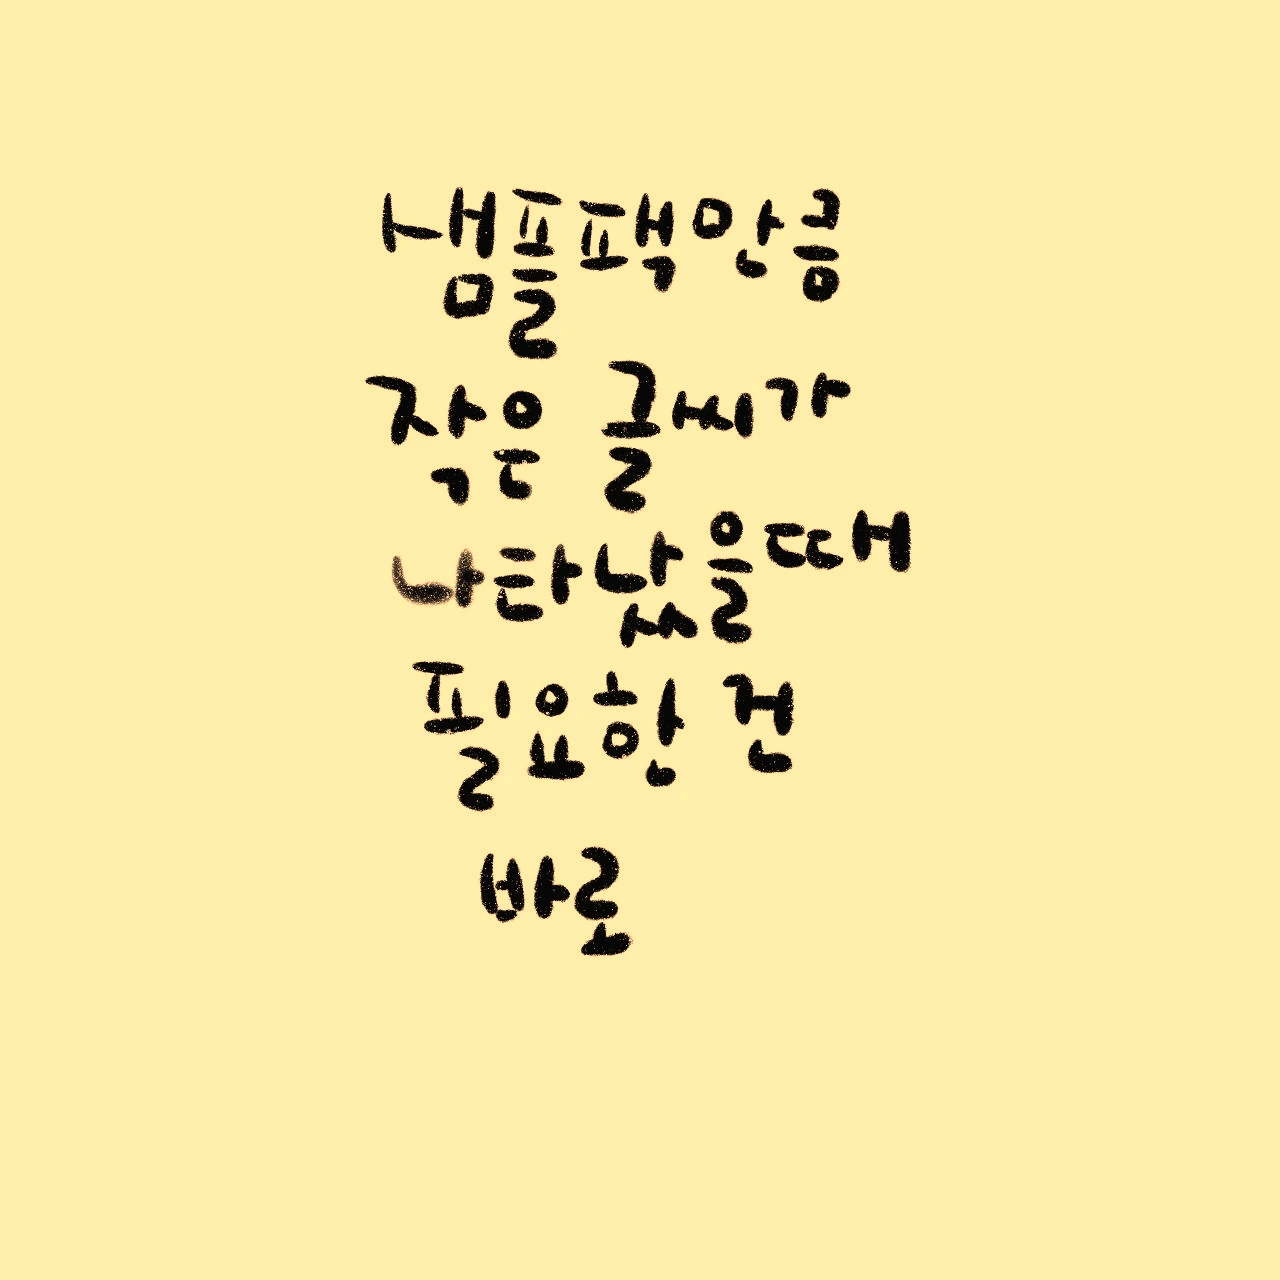 샘플팩만큼
작은 글씨가
나타났을때
필요한 건
바로